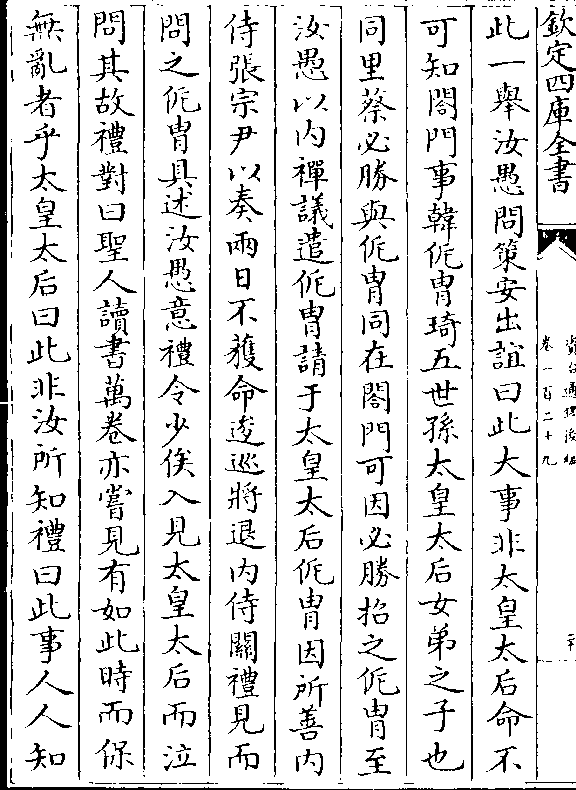 欽定四庫全書
資治通鑑後編
卷一百二十九
此一舉汝愚問策安出誼曰此大事非太皇太后命不
可知閤門事韓侂胄琦五世孫太皇太后女弟之子也
同里蔡必勝與侂胄同在閤門可因必勝招之侂胄至
汝愚以内禪議遣侂胄請于太皇太后侂胄因所善内
侍張宗尹以奏兩日不獲命逡巡將退内侍關禮見而
問之侂胄具述汝愚意禮令少俟入見太皇太后而泣
問其故禮對曰聖人讀書萬卷亦嘗見有如此時而保
無亂者乎太皇太后曰此非汝所知禮曰此事人人知